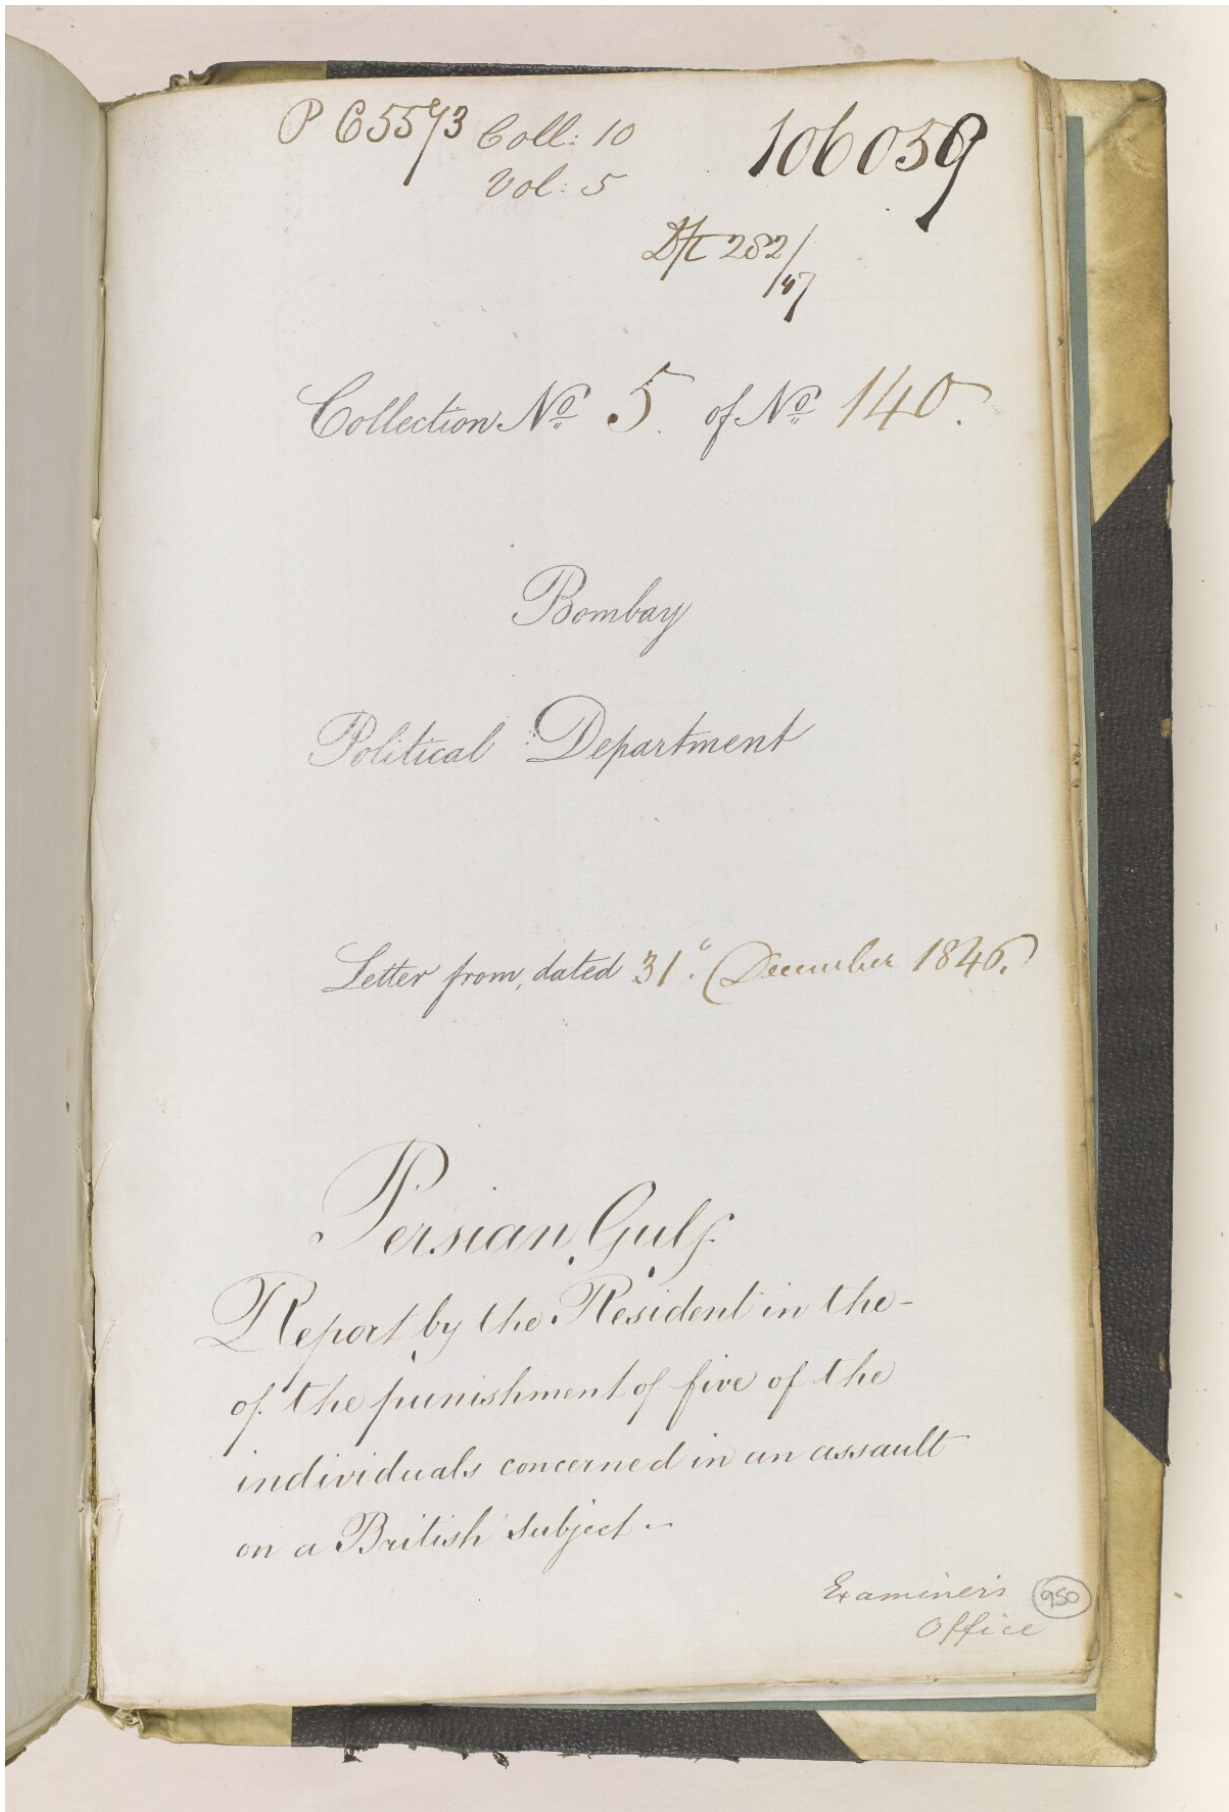 P C 5573 Coll: 10
Vol: 5
106059
Dft 282/47
Collection No. 5 of No. 140.
Bombay
Political Department
Letter from, dated 31. December 1846.
Persian Gulf.
Report by the Resident in the -
of the punishment of five of the
individuals concerned in an assault
on a British Subject. -
Examiner's
Office
950